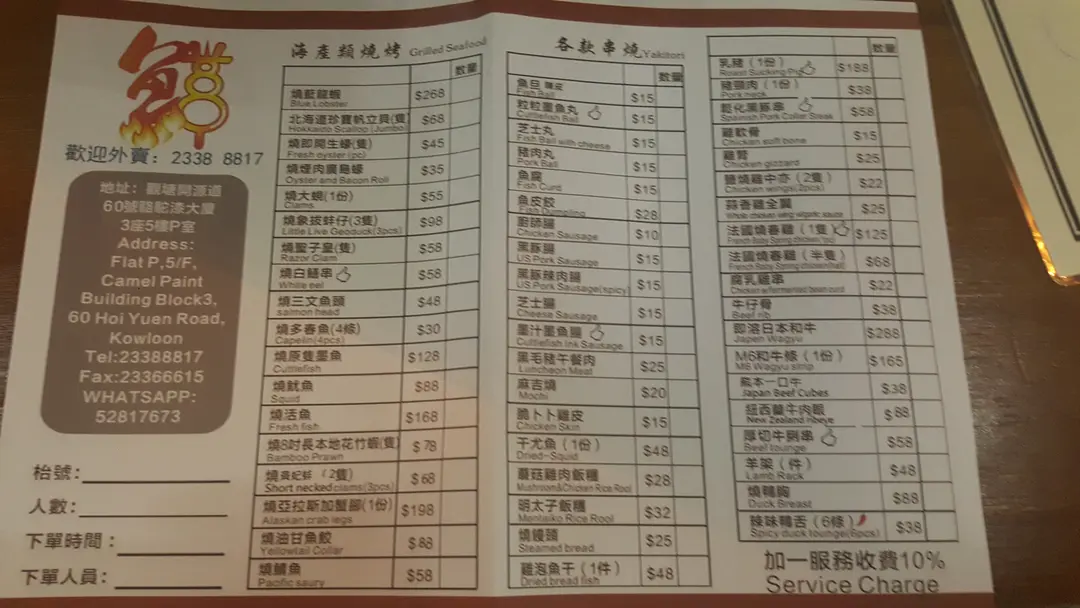 歡迎外賣：2338 8817
地址：觀塘開源道
60號駱駝漆大廈
3座5樓P室
Address:
Flat P,5/F,
Camel Paint
Building Block3,
60 Hoi Yuen Road,
Kowloon
Tel:23388817
Fax:23366615
WHATSAPP:
52817673
枱號：
人數：
下單時間：
下單人員：
海產類燒烤 Grilled Seafood
數量
燒藍龍蝦 $268
Blue Lobster
北海道珍寶帆立貝(隻) $68
Hokkaido Scallop (Jumbo)
燒即開生蠔(隻) $45
Fresh oyster (pc)
燒煙肉廣島蠔 $35
Oyster and Bacon Roll
燒大蜆(1份) $55
Clams
燒象拔蚌仔(3隻) $98
Little Live Geoduck(3pcs)
燒聖子皇(隻) $58
Razor Clam
燒白鱔串 $58
White eel
燒三文魚頭 $48
salmon head
燒多春魚(4條) $30
Capelin(4pcs)
燒原隻墨魚 $128
Cuttlefish
燒魷魚 $88
Squid
燒活魚 $168
Fresh fish
燒8吋長本地花竹蝦(隻) $78
Bamboo Prawn
燒黃蜆蚌（2隻） $68
Short necked clams(3pcs)
燒亞拉斯加蟹腳(1份) $198
Alaskan crab legs
燒油甘魚鮫 $88
Yellowtail Collar
燒鱸魚 $58
Pacific saury
各款串燒 Yakitori
數量
魚旦 $15
Fish Ball
粒粒墨魚丸 $15
Cuttlefish Ball
芝士丸 $15
Fish Ball with cheese
豬肉丸 $15
Pork Ball
魚腐 $15
Fish Curd
魚皮餃 $28
Fish Dumpling
廚師腸 $10
Chicken Sausage
黑豚腸 $15
US Pork Sausage
黑豚辣肉腸 $15
US Pork Sausage(spicy)
芝士腸 $15
Cheese Sausage
墨汁墨魚腸 $15
Cuttlefish Ink Sausage
黑毛豬午餐肉 $25
Luncheon Meat
麻吉燒 $20
Mochi
脆卜卜雞皮 $15
Chicken Skin
干尤魚（1份） $48
Dried-Squid
蘑菇雞肉飯糰 $28
Mushroom&Chicken Rice Rool
明太子飯糰 $32
Mentaiko Rice Rool
燒饅頭 $25
Steamed bread
雞泡魚干（1件） $48
Dried bread fish
數量
乳豬（1份） $188
Roast Sucking Pig
豬頸肉（1份） $38
Pork neck
黑豚串 $58
Spanish Pork Collar Steak
雞軟骨 $15
Chicken soft bone
雞腎 $25
Chicken gizzard
鹽燒雞中亦（2隻） $22
Chicken wings(2pcs)
蒜香雞全翼 $25
Whole chicken wing w/garlic sauce
法國燒春雞（1隻） $125
French Baby Spring chicken(1pc)
法國燒春雞（半隻） $68
French Baby Spring chicken(half)
腐乳雞串 $22
Chicken w/fermented bean curd
牛仔骨 $38
Beef rib
即溶日本和牛 $288
Japen Wagyu
M6和牛條（1份） $165
M6 Wagyu strip
熊本一口牛 $38
Japan Beef Cubes
紐西蘭牛肉眼 $88
New Zealand ribeye
厚切牛脷串 $58
Beef tounge
羊架（件） $48
Lamb Rack
燒鴨胸 $88
Duck Breast
辣味鴨舌（6條） $38
Spicy duck tounge(6pcs)
加一服務收費10%
Service Charge